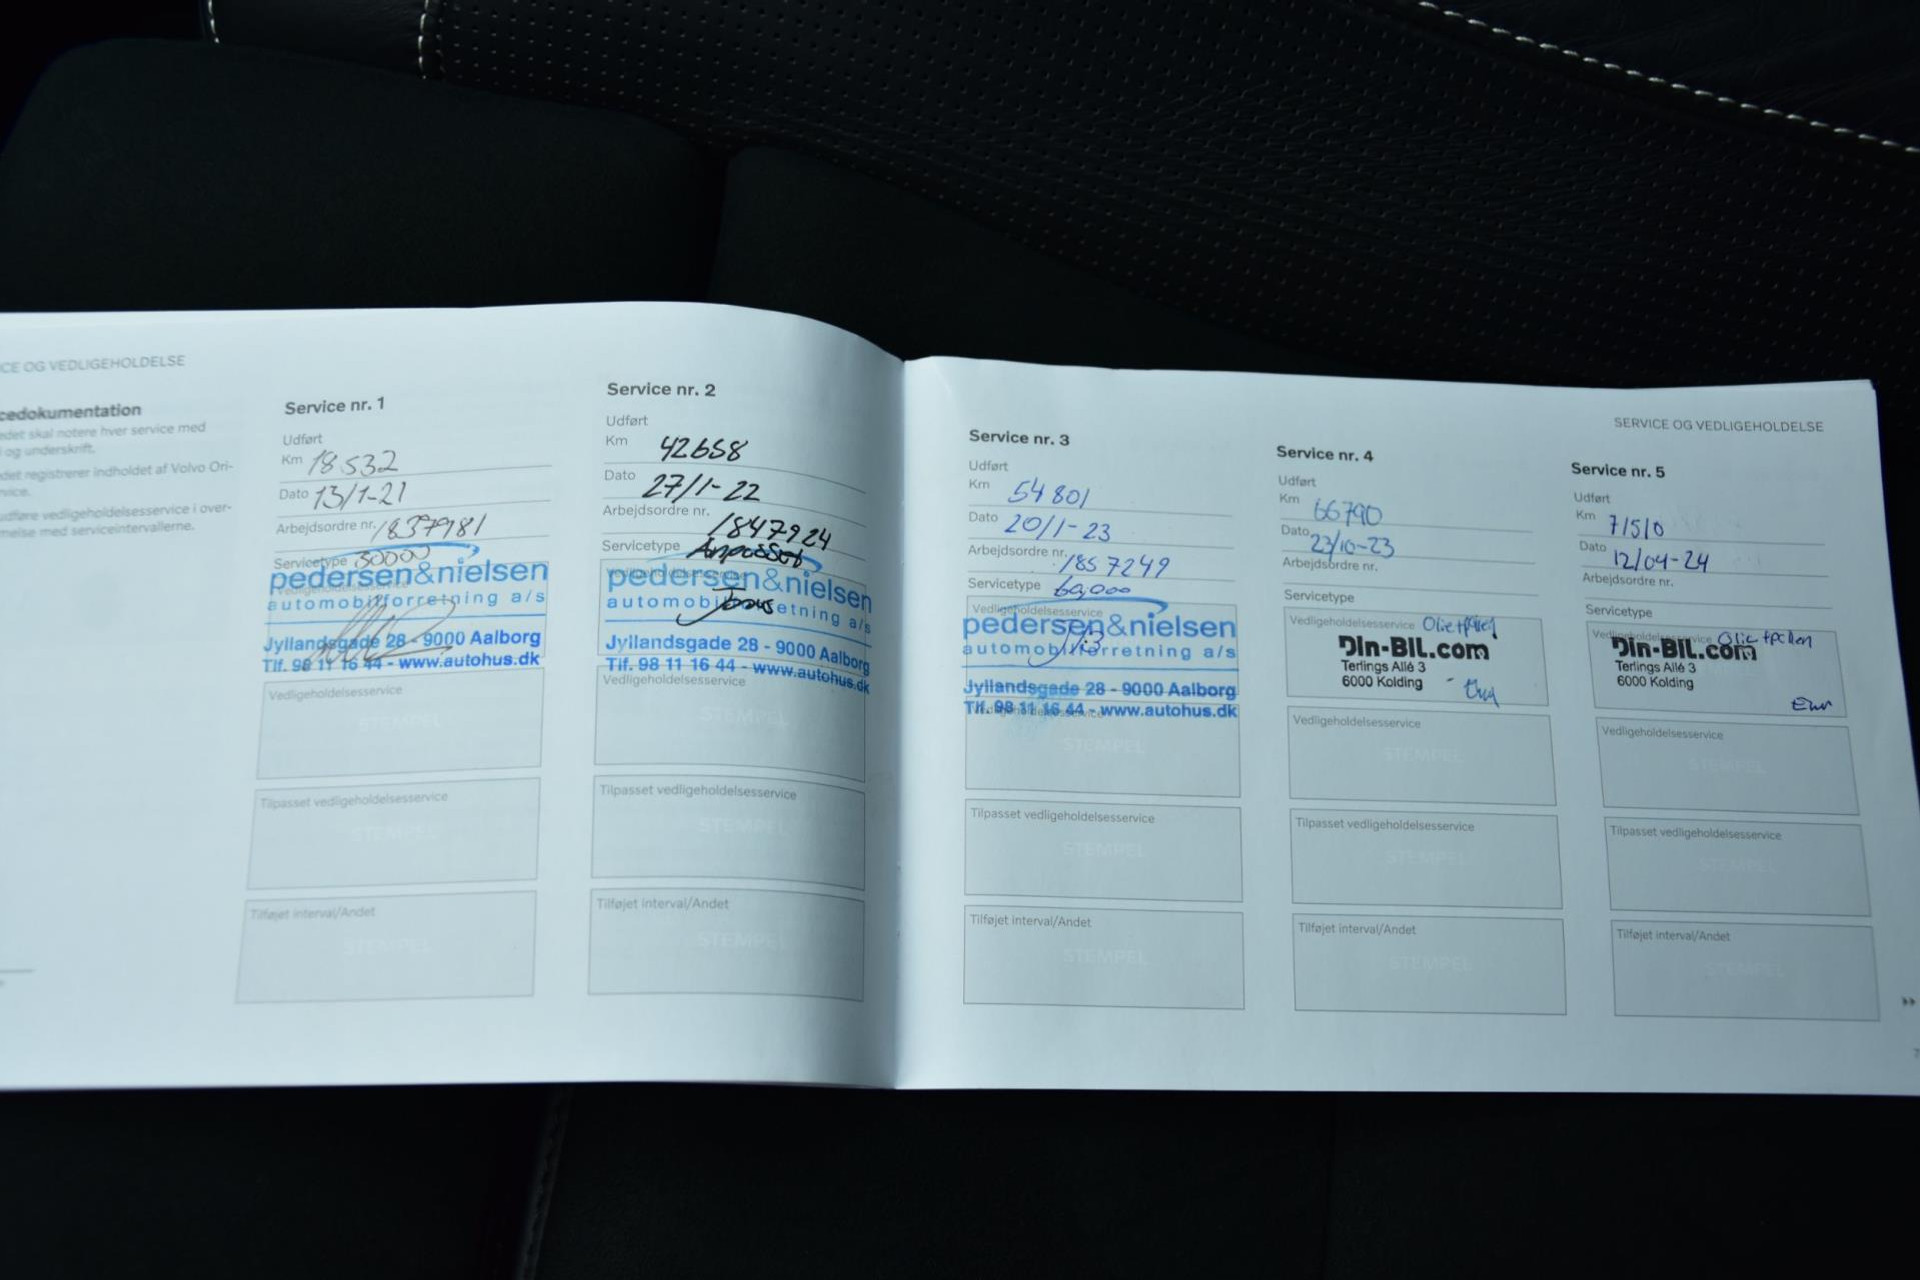 CE OG VEDLIGEHOLDELSE
cedokumentation
edet skal notere hver service med
og underskrift.
det registrerer indholdet af Volvo Ori-
rvice.
udføre vedligeholdelsesservice i over-
melse med serviceintervallerne.
Service nr. 1
Udført
Km 18532
Dato 13/1-21
Arbejdsordre nr. 1837981
Servicetype 30000
pedersen&nielsen
automobilforretning a/s
Jyllandsgade 28 - 9000 Aalborg
Tlf. 98 11 16 44 - www.autohus.dk
Vedligeholdelsesservice
STEMPEL
Tilpasset vedligeholdelsesservice
STEMPEL
Tilføjet interval/Andet
STEMPEL
Service nr. 2
Udført
Km 42658
Dato 27/1-22
Arbejdsordre nr. 1847924
Servicetype
pedersen&nielsen
automobilforretning a/s
Jyllandsgade 28 - 9000 Aalborg
Tlf. 98 11 16 44 - www.autohus.dk
Vedligeholdelsesservice
STEMPEL
Tilpasset vedligeholdelsesservice
STEMPEL
Tilføjet interval/Andet
STEMPEL
SERVICE OG VEDLIGEHOLDELSE
Service nr. 3
Udført
Km 54801
Dato 20/1-23
Arbejdsordre nr. 1857249
Servicetype 60,000
Vedligeholdelsesservice
pedersen&nielsen
automobilforretning a/s
Jyllandsgade 28 - 9000 Aalborg
Tlf. 98 11 16 44 - www.autohus.dk
Vedligeholdelsesservice
STEMPEL
Tilpasset vedligeholdelsesservice
STEMPEL
Tilføjet interval/Andet
STEMPEL
Service nr. 4
Udført
Km 66790
Dato 23/10-23
Arbejdsordre nr.
Servicetype
Vedligeholdelsesservice
Din-BIL.com
Terlings Allé 3
6000 Kolding
Vedligeholdelsesservice
STEMPEL
Tilpasset vedligeholdelsesservice
STEMPEL
Tilføjet interval/Andet
STEMPEL
Service nr. 5
Udført
Km 71510
Dato 12/04-24
Arbejdsordre nr.
Servicetype
Vedligeholdelsesservice
Din-BIL.com
Terlings Allé 3
6000 Kolding
Vedligeholdelsesservice
STEMPEL
Tilpasset vedligeholdelsesservice
STEMPEL
Tilføjet interval/Andet
STEMPEL